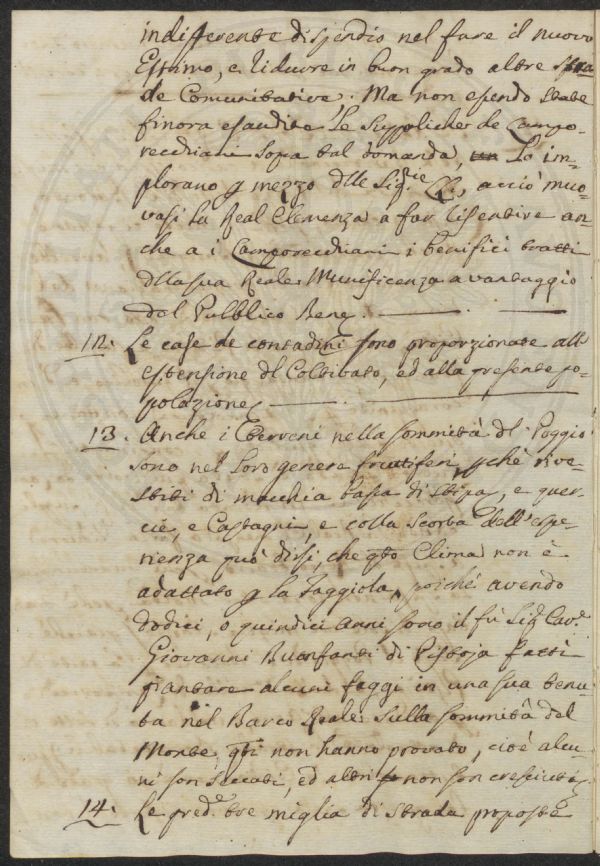 indifferente dispendio nel fare il nuovo
Estimo, e ridurre in buon grado altre stra
de Comunitative. Ma non essendo state
finora esaudite le Suppliche de Campo-
recchiani sopa tal domanda, Lo im-
plorano p mezzo dlle Sig.rie, acciò muo-
vasi la Real Clemenza a far risentire an-
che a i Camporecchiani i benifici tratti
dlla sua Reale Munificenza a vantaggio
del Pubblico Bene
12. Le case de contadini sono proporzionate all'
estensione dl Coltivato, ed alla presente po-
polazione
13. Anche i Terreni nella sommità dl Poggio
sono nel loro genere fruttiferi, pchè rive-
stiti di macchia bassa di stipa, e quer-
cie, e Castagni, e colla scorta dell'espe-
rienza può dirsi, che qto Clima non è
adattato p la Faggiola, poiché avendo
dodici, o quindici anni sono il fù Sig. Cav.e
Giovanni Buonfanti di Pistoja fatti
piantare alcuni faggi in una sua tenu-
ta nel Barco Reale sulla sommità del
Monte, qti non hanno provato, cioè alcu-
ni son seccati, ed altri non son cresciuti
14. Le pred.e tre miglia di strada proposte